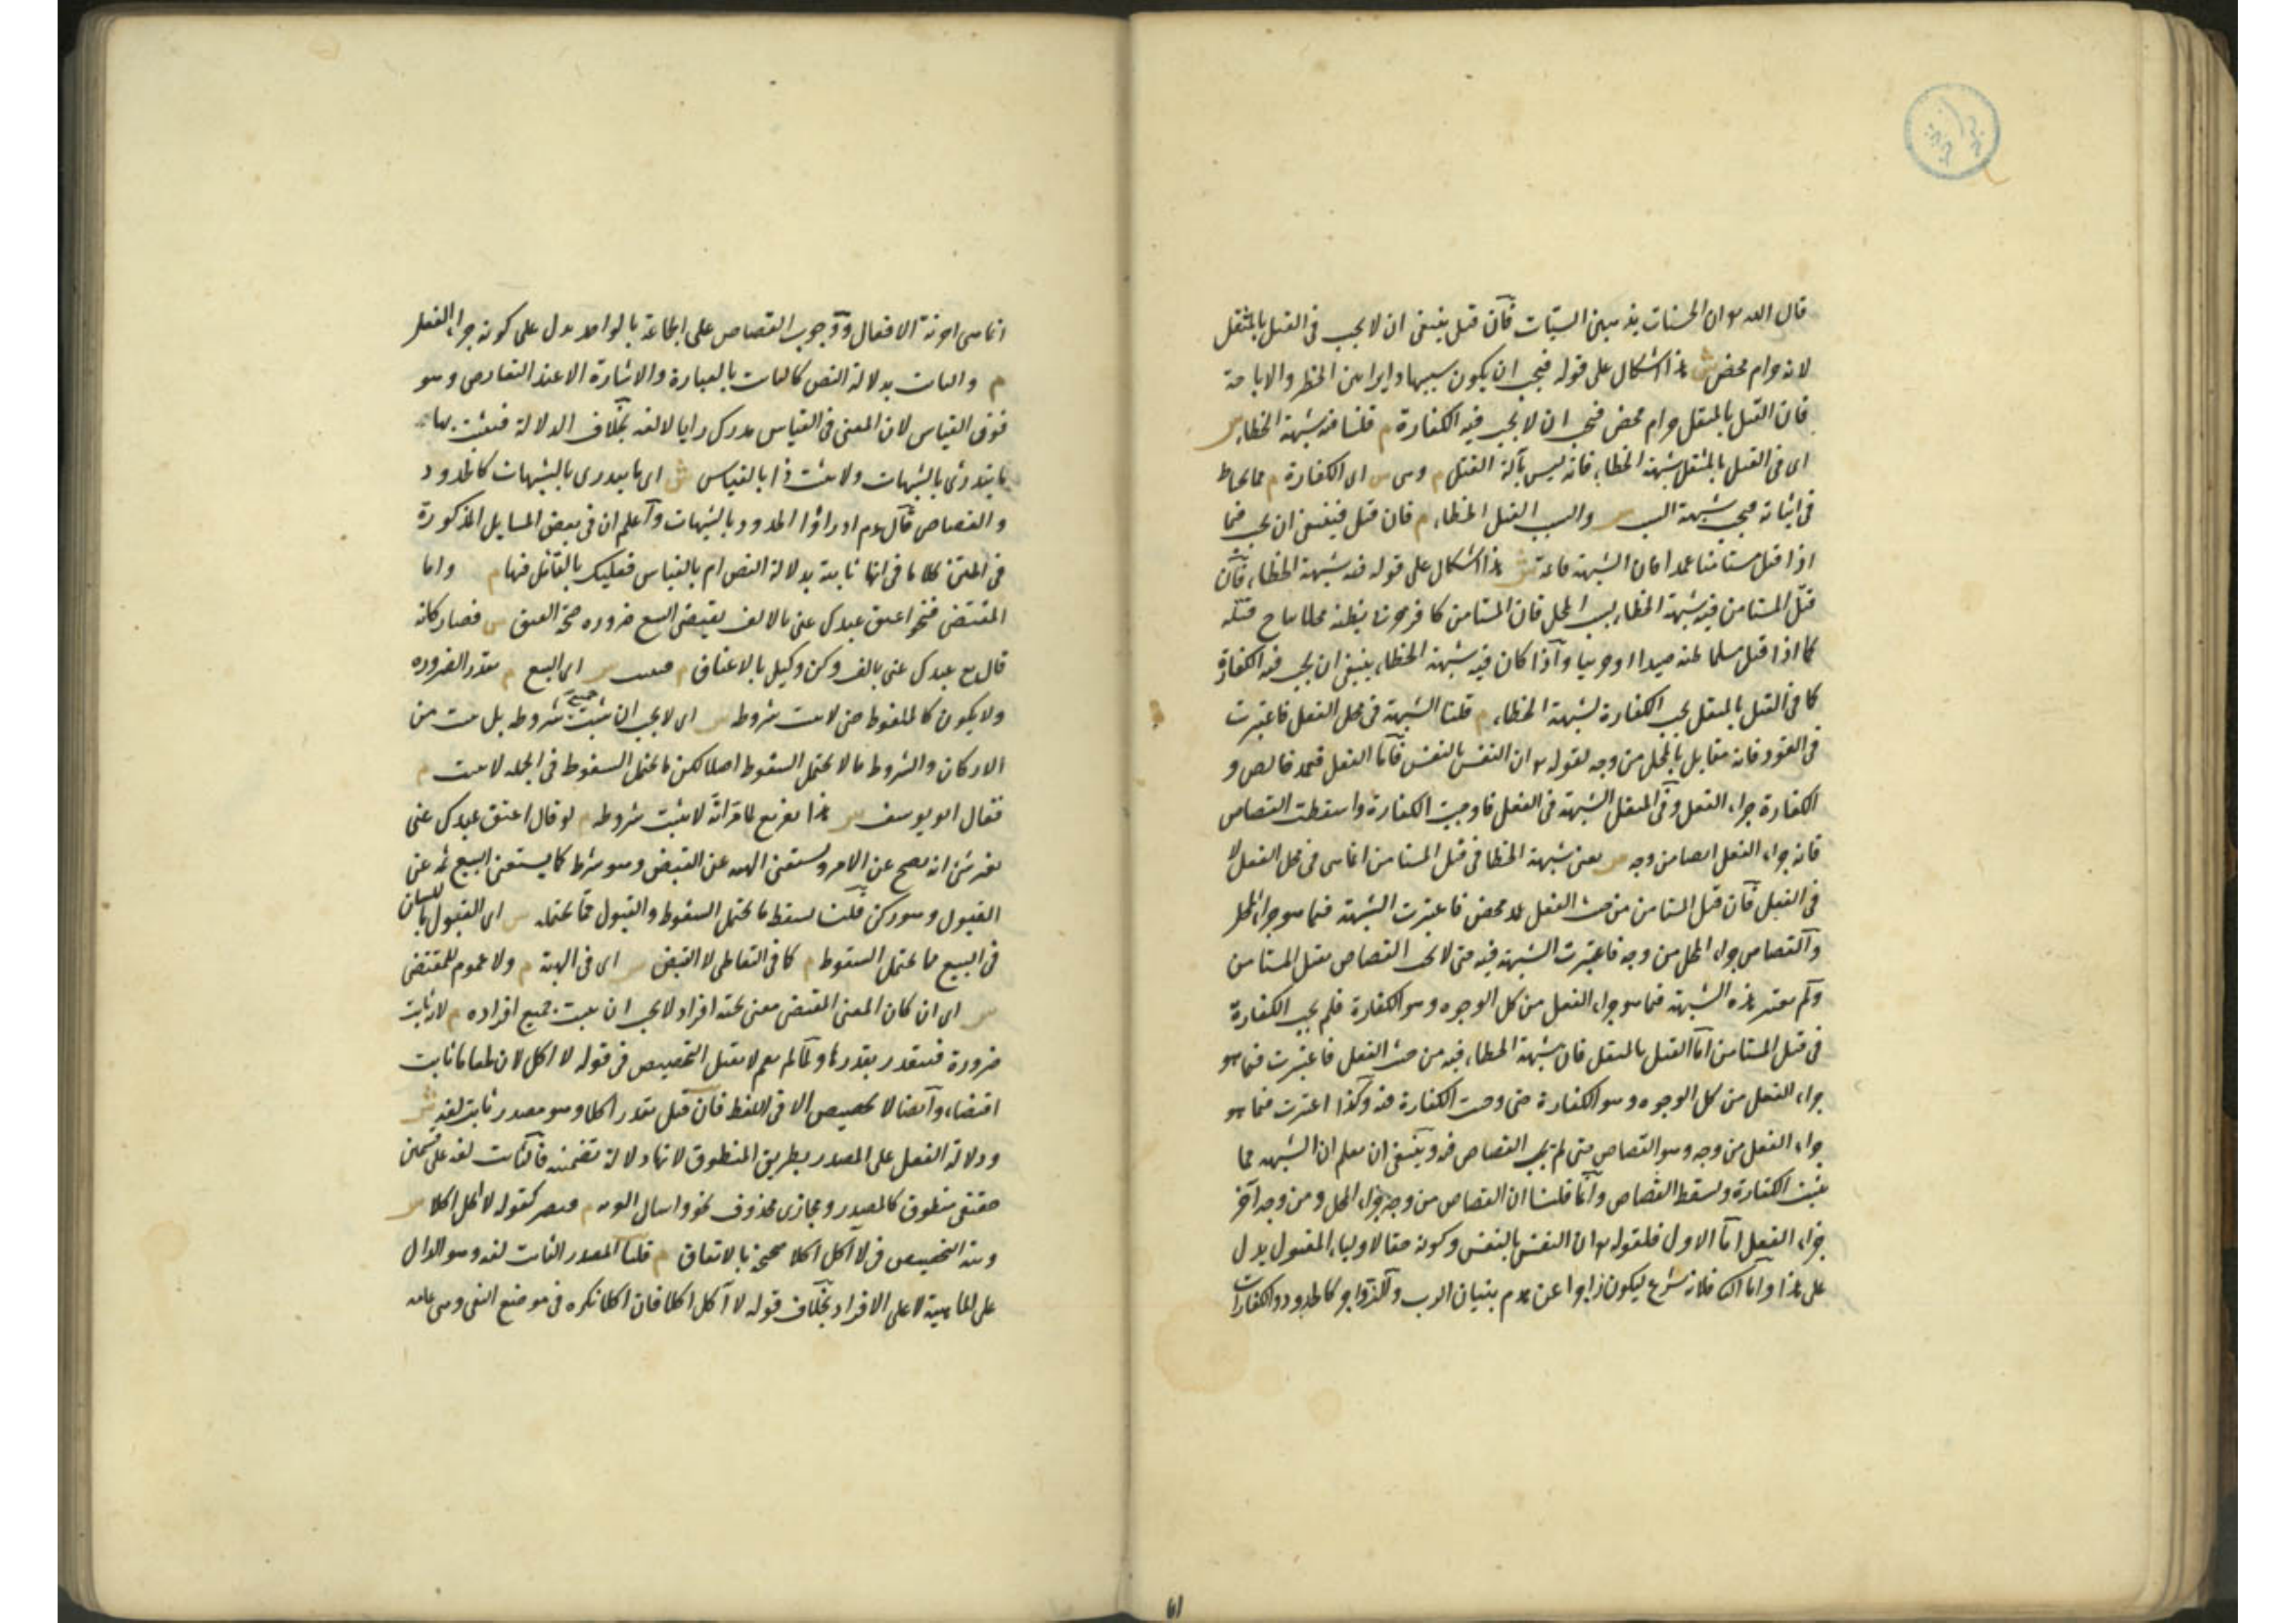 قال الله تع ان الحسنات يذهبن السيئات فان قيل ينبغي ان لا يجب في القتل بالمثقل
لانه حرام محض ش هذا اشكال على قوله فيجب ان يكون سببها دايرا بين الحظر والاباحة
فان القتل بالمثقل حرام محض فيجب ان لا يجب فيه الكفارة م قلنا فيه شبهة الخطاء ش
اى في القتل بالمثقل شبهة الخطاء فانه ليس بآلة القتل م وهى ش اى الكفارة م مما يحتاط
في اثباته فيجب بشبهة السبب ش والسبب القتل الخطاء م فان قيل فينبغي ان يجب فيما
اذا قتل مستامنا عمدا فان الشبهة قائمة ش هذا اشكال على قوله فيه شبهة الخطاء فان
قتل المستامن فيه شبهة الخطاء بسبب المحل فان المستامن كافر حربى يظنه محلا يباح قتله
كما اذا قتل مسلما ظنه صيدا او حربيا واذا كان فيه شبهة الخطاء ينبغي ان يجب فيه الكفارة
كما في القتل بالمثقل يجب الكفارة لشبهة الخطاء م قلنا الشبهة في محل الفعل فاعتبرت
في القود فانه مقابل بالمحل من وجه لقوله تع ان النفس بالنفس فاما الفعل فعمد خالص و
الكفارة جزاء الفعل وفي المثقل الشبهة في الفعل فاوجبت الكفارة واسقطت القصاص
فانه جزاء الفعل ايضا من وجه ش يعنى شبهة الخطا في قتل المستامن انما هى في محل الفعل لا
في الفعل فان قتل المستامن من حيث الفعل عمد محض فاعتبرت الشبهة فيما هو جزاء المحل
والقصاص جزاء المحل من وجه فاعتبرت الشبهة فيه حتى لا يجب القصاص بقتل المستامن
ولم يعتبر هذه الشبهة فيما هو جزاء الفعل من كل الوجوه وهو الكفارة فلم يجب الكفارة
في قتل المستامن اما القتل بالمثقل فان شبهة الخطاء فيه من حيث الفعل فاعتبرت فيما هو
جزاء الفعل من كل الوجوه وهو الكفارة حتى وجبت الكفارة فيه وكذا اعتبرت فيما هو
جزاء الفعل من وجه وهو القصاص حتى لم يجب القصاص فيه وينبغي ان يعلم ان الشبهه مما
يثبت الكفارة ويسقط القصاص وانما قلنا ان القصاص من وجه جزاء المحل ومن وجه آخر
جزاء الفعل اما الاول فلقوله تع ان النفس بالنفس وكونه حقا لاولياء المقتول يدل
على هذا واما الثانى فلانه شرع ليكون زاجرا عن هدم بنيان الرب والزواجر كالحدود والكفارات
انما هى اجزية الافعال ووجوب القصاص على الجماعة بالواحد يدل على كونه جزاء الفعل
م والثابت بدلالة النص كالثابت بالعبارة والاشارة الا عند التعارض وهو
فوق القياس لان المعنى في القياس مدرك رايا لا لغة بخلاف الدلالة فيثبت بها
ما يندرئ بالشبهات ولا يثبت ذا بالقياس ش اى ما يندرى بالشبهات كالحدود
والقصاص قال عم ادراؤا الحدود بالشبهات واعلم ان في بعض المسايل المذكورة
في المتن كلاما في انها ثابتة بدلالة النص ام بالقياس فعليك بالتأمل فيها م واما
المقتضى فنحو اعتق عبدك عنى بالالف يقتضى البيع ضروره صحة العتق ش فصار كانه
قال بع عبدك عنى بالف وكن وكيلى بالاعتاق م فيثبت ش اى البيع م بقدر الضروره
ولا يكون كالملفوظ حتى لا يثبت شروطه ش اى لا يجب ان يثبت جميع شروطه بل يثبت من
الاركان والشروط ما لا يحتمل السقوط اصلا لكن ما يحتمل السقوط في الجملة لا يثبت م
فقال ابو يوسف ش هذا تفريع لما مر انه لا يثبت شروطه م لو قال اعتق عبدك عنى
بغير شئ انه يصح عن الامر ويستغنى الهبة عن القبض وهو شرط كما يستغنى البيع ثمه عن
القبول وهو ركن قلنا يسقط ما يحتمل السقوط والقبول مما يحتمله ش اى القبول باللسان
في البيع مما يحتمل السقوط م كما في التعاطى لا القبض ش اى في الهبة م ولا عموم للمقتضى
ش اى ان كان المعنى المقتضى معنى تحته افراد لا يجب ان يثبت جميع افراده م لانه ثابت
ضرورة فيتقدر بقدرها ولما لم يعم لا يقبل التخصيص في قوله لا اكل لان طعاما ثابت
اقتضاء وايضا لا تخصيص الا في اللفظ فان قيل يقدر اكلا وهو مصدر ثابت لغة ش
ودلالة الفعل على المصدر بطريق المنطوق لانها دلالة تضمنية فالثابت لغة على قسمين
حقيقى منطوق كالمصدر ومجازى محذوف نحو واسأل القرية م فيصير كقوله لا اكل اكلا ش
ونية التخصيص في لا آكل اكلا صحيحة بالاتفاق م قلنا المصدر الثابت لغة هو الدال
على الماهية لا على الافراد بخلاف قوله لا آكل اكلا فان اكلا نكره في موضع النفى وهى عامه